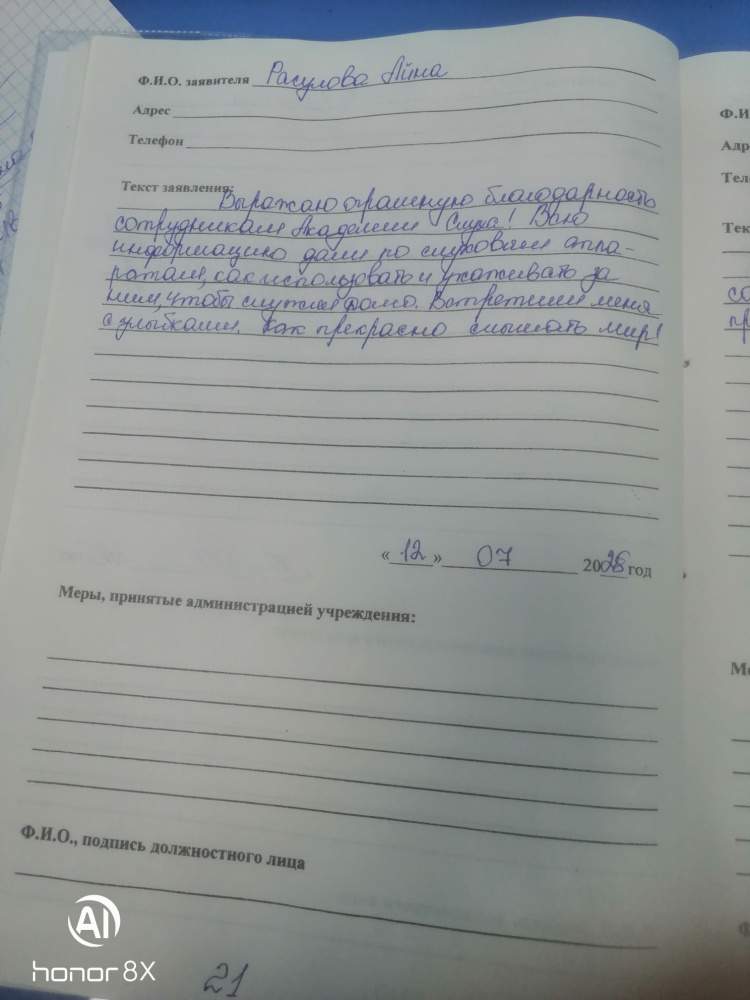 Ф.И.О. заявителя Расулова Айна
Адрес
Телефон
Текст заявления: Выражаю огромную благодарность
сотрудникам Академии Слуха! Всю
информацию дали по слуховым аппа-
ратам, как использовать и ухаживать за
ними, чтобы служили долго. Встретили меня
с улыбками. Как прекрасно слышать мир!
«12» 07 20 год
Меры, принятые администрацией учреждения:
Ф.И.О., подпись должностного лица
AI
honor 8X
21
Ф.И
Адр
Тел
Тек
со
пр
Ме